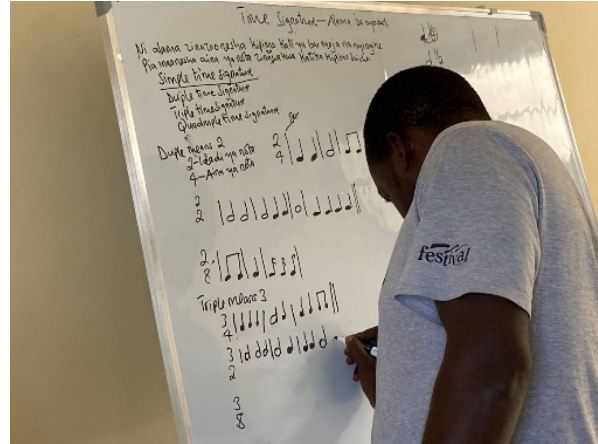 Time Signature — Alama za
Ni alama zinazoonesha kipimo kati ya bar moja na nyingine
Pia inaonesha aina ya nota katika kipimo
Simple time signature
Duple time Signature
Triple time signature
Quadruple time signature
Duple means 2
2 - Idadi ya nota
4 - Aina ya nota
2
4
2
2
2
8
Triple means 3
3
4
3
2
3
8
festival